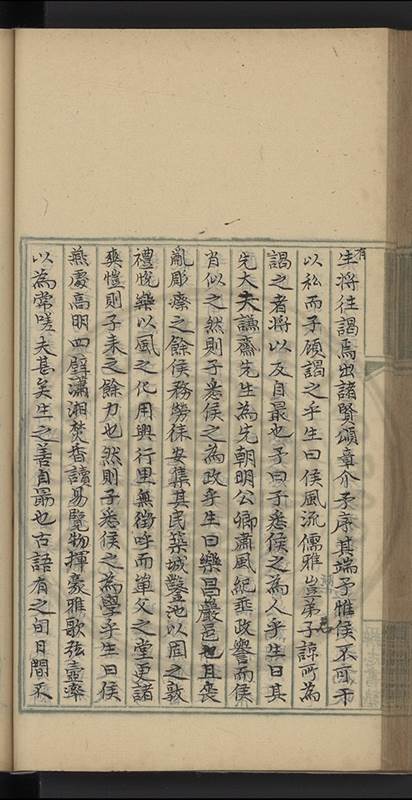 有
生將往謁焉出諸賢頌章介予序其端予惟侯不可干
以私而子顧謁之乎生曰侯風流儒雅豈弟子諒所為
謁之者將以友自最也予曰子悉侯之為人乎生曰其
先大夫謙齋先生為先朝明公卿肅風紀垂政譽而侯
肖似之然則子悉侯之為政乎生曰樂昌嚴邑也且喪
亂彫瘵之餘侯務勞徠安集其民築城鑿池以固之敦
禮悅樂以風之化用興行里無徵呼而單父之堂更諸
爽愷則子來之餘力也然則子悉侯之為學乎生曰侯
燕處高明四壁瀟湘焚香讀易覽物揮豪雅歌弦壺率
以為常嗟夫甚矣生之善自最也古語有之间日閒不